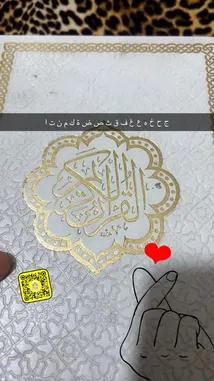 ج ح خ ه ع غ ف ق ث ص ض ش ة ك م ن ت ا
القرآن الكريم